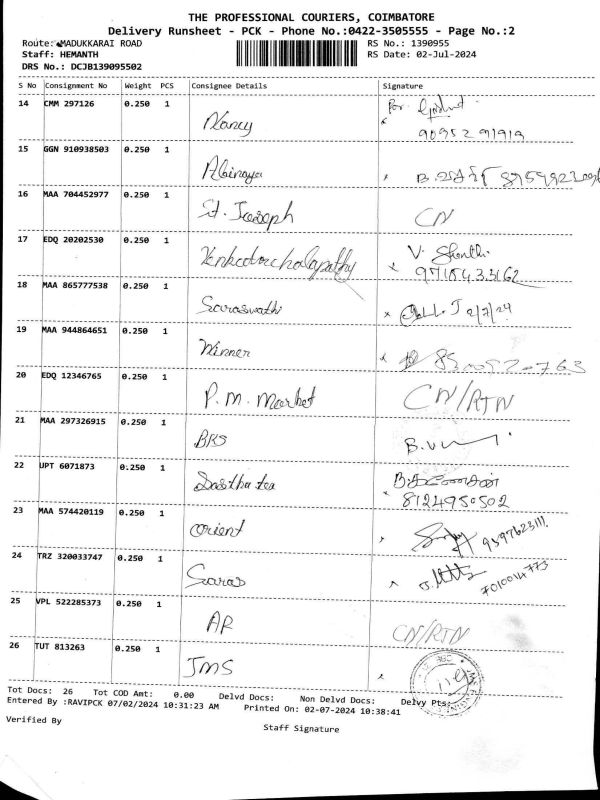 THE PROFESSIONAL COURIERS, COIMBATORE
Delivery Runsheet - PCK - Phone No.:0422-3505555 - Page No.:2
Route: MADUKKARAI ROAD RS No.: 1390955
Staff: HEMANTH RS Date: 02-Jul-2024
DRS No.: DCJB139095502
S No Consignment No Weight PCS Consignee Details Signature
14 CMM 297126 0.250 1 Nancy For
15 GGN 910938503 0.250 1 Abinaya
16 MAA 704452977 0.250 1 St. Joseph CN
17 EDQ 20202530 0.250 1 V. Shanthi
18 MAA 865777538 0.250 1 Saraswathi 2/7/24
19 MAA 944864651 0.250 1 Winner
20 EDQ 12346765 0.250 1 P. M. Market CN/RTN
21 MAA 297326915 0.250 1 BKS
22 UPT 6071873 0.250 1 Dastha tea
8124950502
23 MAA 574420119 0.250 1 Orient
24 TRZ 320033747 0.250 1 Saras
25 VPL 522285373 0.250 1 AR CN/RTN
26 TUT 813263 0.250 1 JMS
Tot Docs: 26 Tot COD Amt: 0.00 Delvd Docs: Non Delvd Docs: Delvy Pts:
Entered By :RAVIPCK 07/02/2024 10:31:23 AM Printed On: 02-07-2024 10:38:41
Verified By Staff Signature